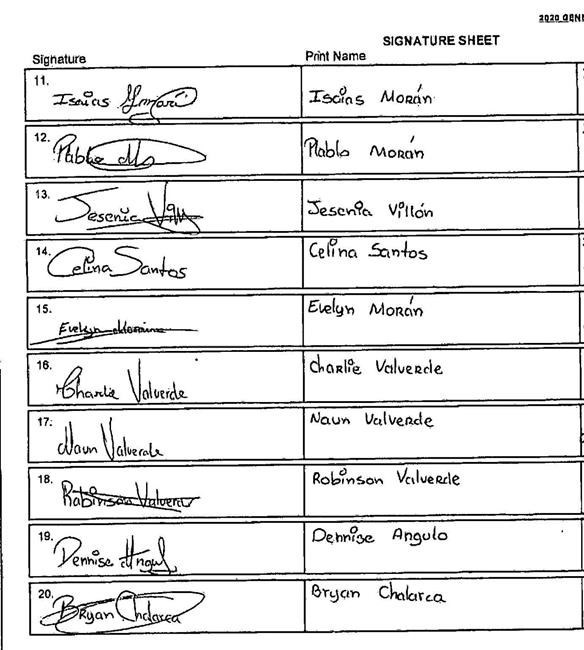 2020 GENE
SIGNATURE SHEET
Signature Print Name
11. Isaias Moran Isaias Morán
12. Pablo Mo Plablo Morán
13. Jesenia Vill Jesenia Villón
14. Celina Santos Celina Santos
15. Evelyn Evelyn Morán
16. Charlie Valverde Charlie Valverde
17. Naun Valverde Naun Valverde
18. Robinson Valverde Robinson Valverde
19. Dennise Angul Dennise Angulo
20. Bryan Chalarca Bryan Chalarca